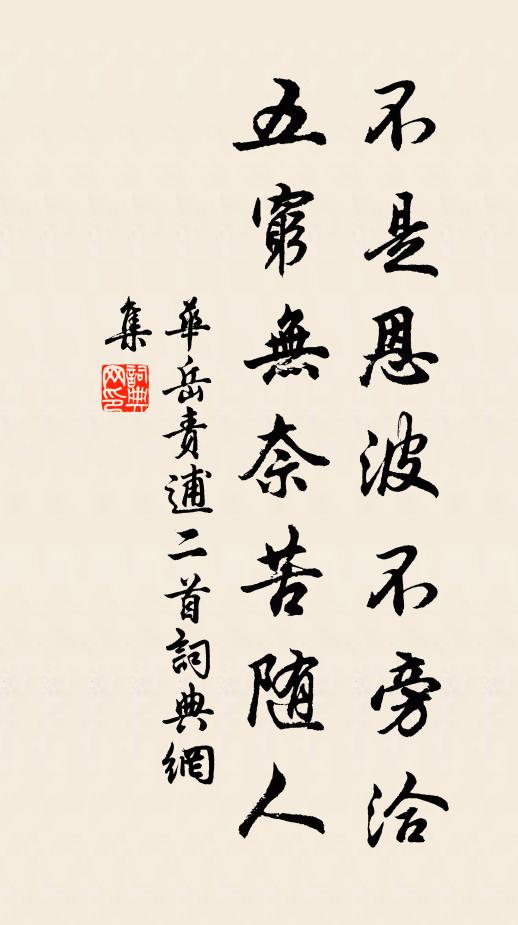 不是恩波不旁洽
五窮無奈苦随人
華岳責逋二首詞典網
集
詞典
网印